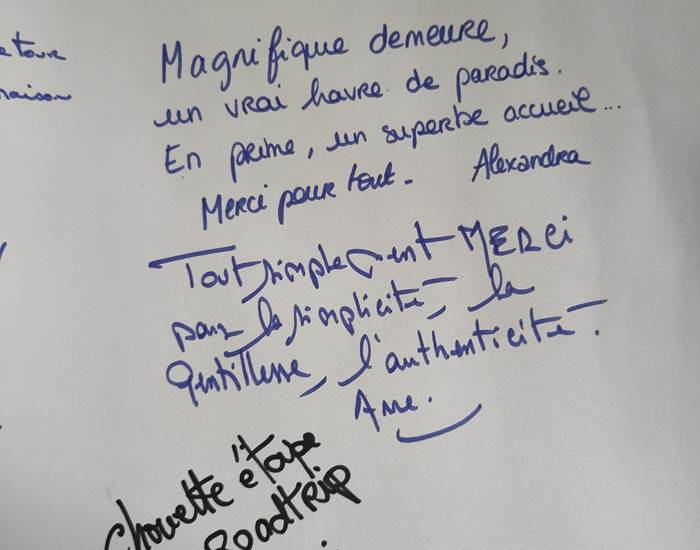 e tour
maison
Magnifique demeure,
un vrai havre de paradis.
En prime, un superbe accueil...
Merci pour tout. Alexandra
Tout simplement MERCi
pour la simplicité, la
gentillesse, l'authenticité.
Anne.
chouette étape
Roadtrip